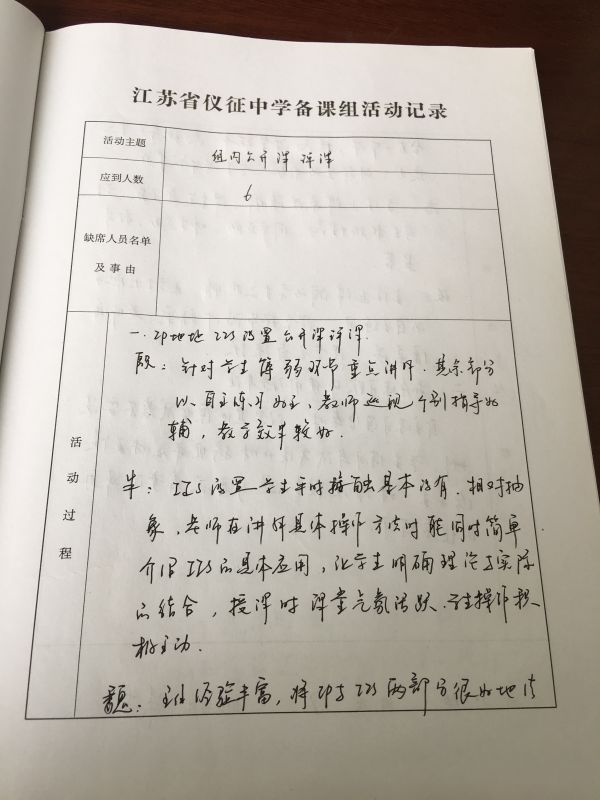 江苏省仪征中学备课组活动记录
活动主题
组内公开课 评课
应到人数
6
缺席人员名单
及事由
活动过程
一. IP地址 IIS设置公开课评课.
殷：针对学生薄弱环节重点讲解. 其余部分
以自主练习为主，教师巡视个别指导为
辅，教学效率较好.
牛：IIS设置学生平时接触基本没有. 相对抽
象，老师在讲解具体操作方法时能同时简单
介绍IIS的具体应用，让学生明确理论与实际
的结合，授课时课堂气氛活跃. 学生操作积
极主动.
经验丰富，将IP与IIS两部分很好地